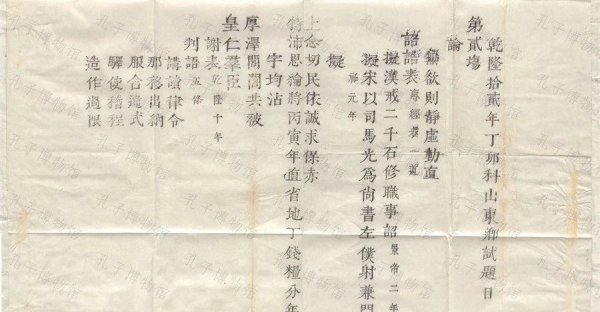 乾隆拾貳年丁卯科山東鄉試題目
第貳場
論
無欲則靜虛動直
詔誥表 專經者一道
擬漢戒二千石修職事詔 景帝二年
擬宋以司馬光爲尚書左僕射兼門
祐元年
擬
上念切民依誠求保赤
特沛恩綸將丙寅年直省地丁錢糧分年
宇均沾
厚澤閭閻共被
皇仁羣臣
謝表 乾隆十年
判語五條
講讀律令
那移出納
服舍違式
驛使稽程
造作過限
孔子博物馆